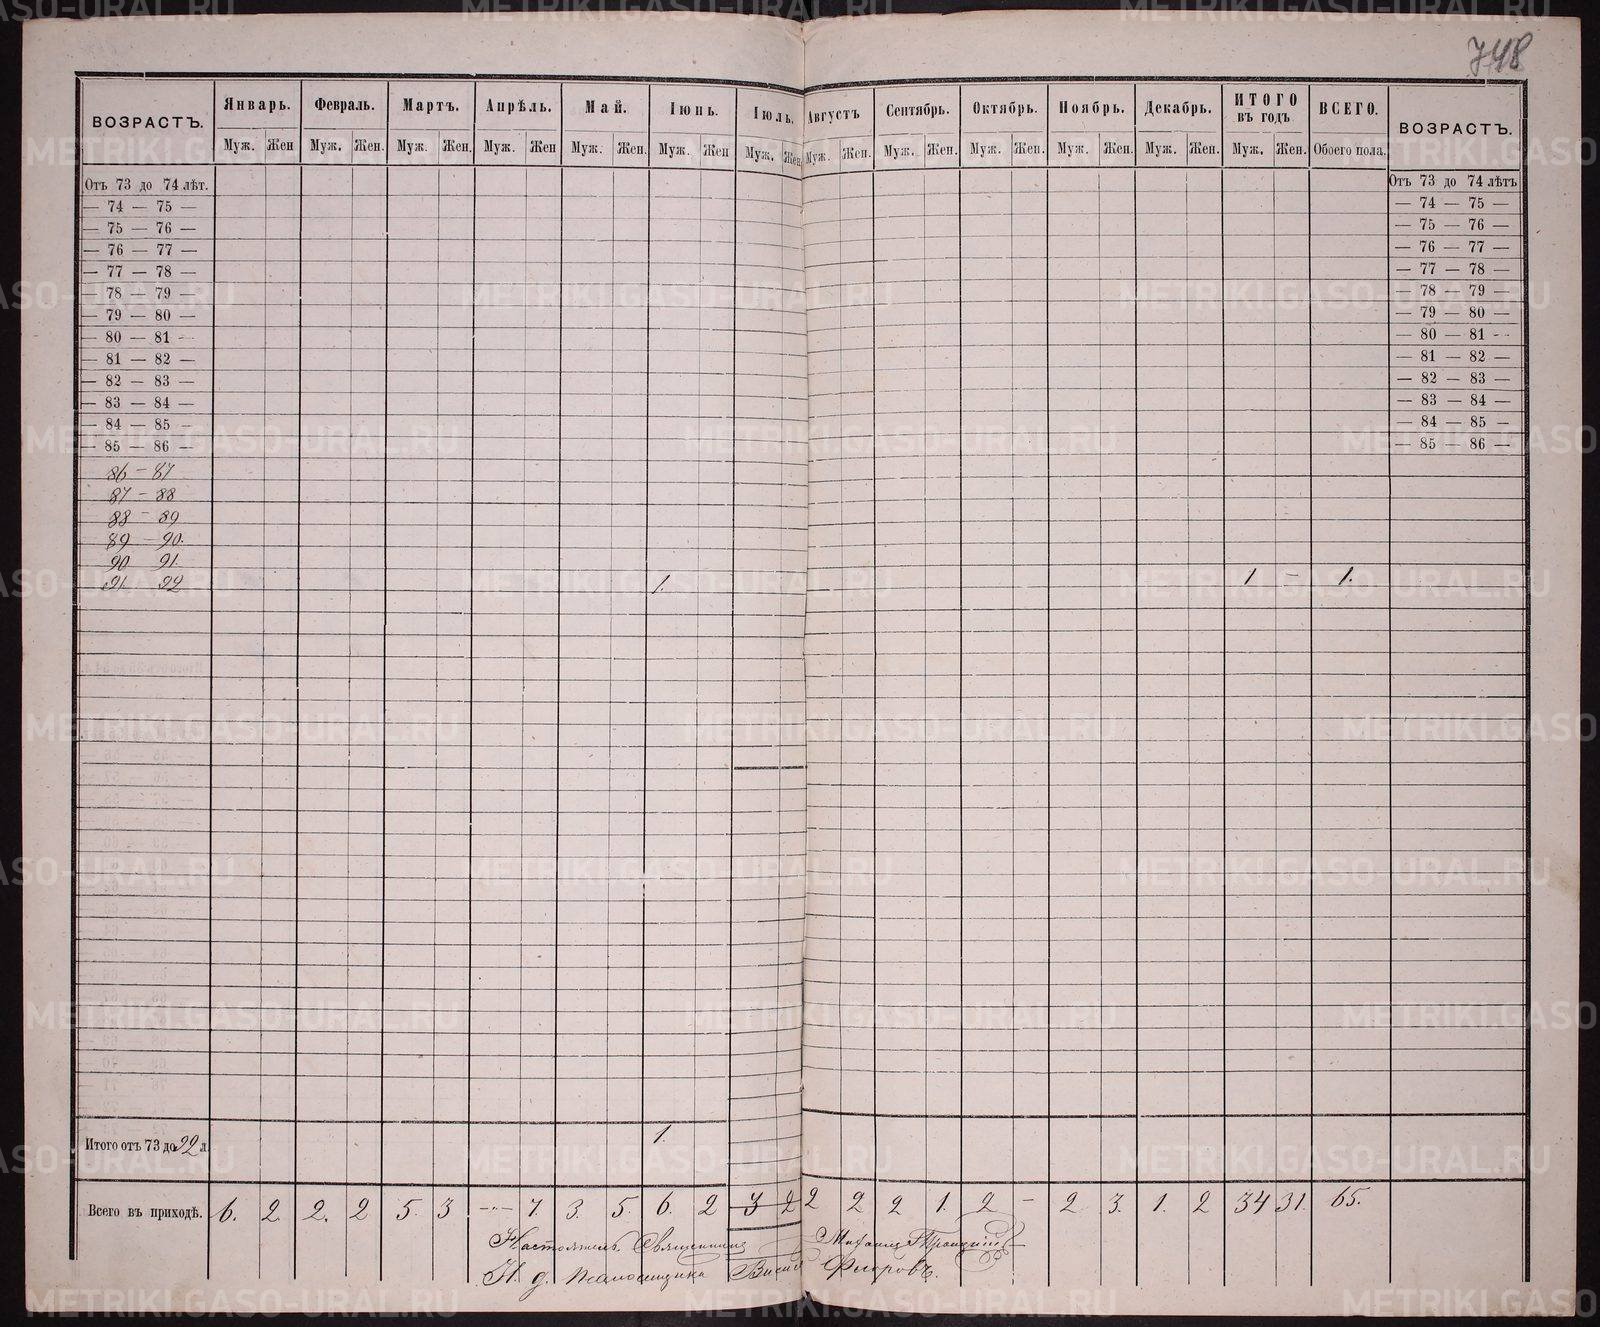 748
ВОЗРАСТЪ. Январь. Февраль. Мартъ. Апрѣль. Май. Іюнь. Іюль. Августъ Сентябрь. Октябрь. Ноябрь. Декабрь. ИТОГО въ годъ ВСЕГО. ВОЗРАСТЪ.
Муж. Жен Муж. Жен. Муж. Жен. Муж. Жен Муж. Жен. Муж. Жен Муж. Жен. Муж. Жен. Муж. Жен. Муж. Жен. Муж. Жен. Муж. Жен. Муж. Жен. Обоего пола.
Отъ 73 до 74 лѣт. Отъ 73 до 74 лѣтъ
— 74 — 75 — — 74 — 75 —
— 75 — 76 — — 75 — 76 —
— 76 — 77 — — 76 — 77 —
— 77 — 78 — — 77 — 78 —
— 78 — 79 — — 78 — 79 —
— 79 — 80 — — 79 — 80 —
— 80 — 81 — — 80 — 81 —
— 81 — 82 — — 81 — 82 —
— 82 — 83 — — 82 — 83 —
— 83 — 84 — — 83 — 84 —
— 84 — 85 — — 84 — 85 —
— 85 — 86 — — 85 — 86 —
86 — 87
87 — 88
88 — 89
89 — 90.
90 91.
91. 92 1. 1 — 1.
Итого отъ 73 до 92 л. 1.
Всего въ приходѣ. 6. 2. 2. 2 5. 3 — 7. 3. 5. 6. 2 3 2 2 2 2 1. 2 — 2 3. 1. 2 34 31. 65.
Настоятель Священникъ Михаилъ Троицкій
И. д. псаломщика Флоровъ.
METRIKI.GASO-URAL.RU